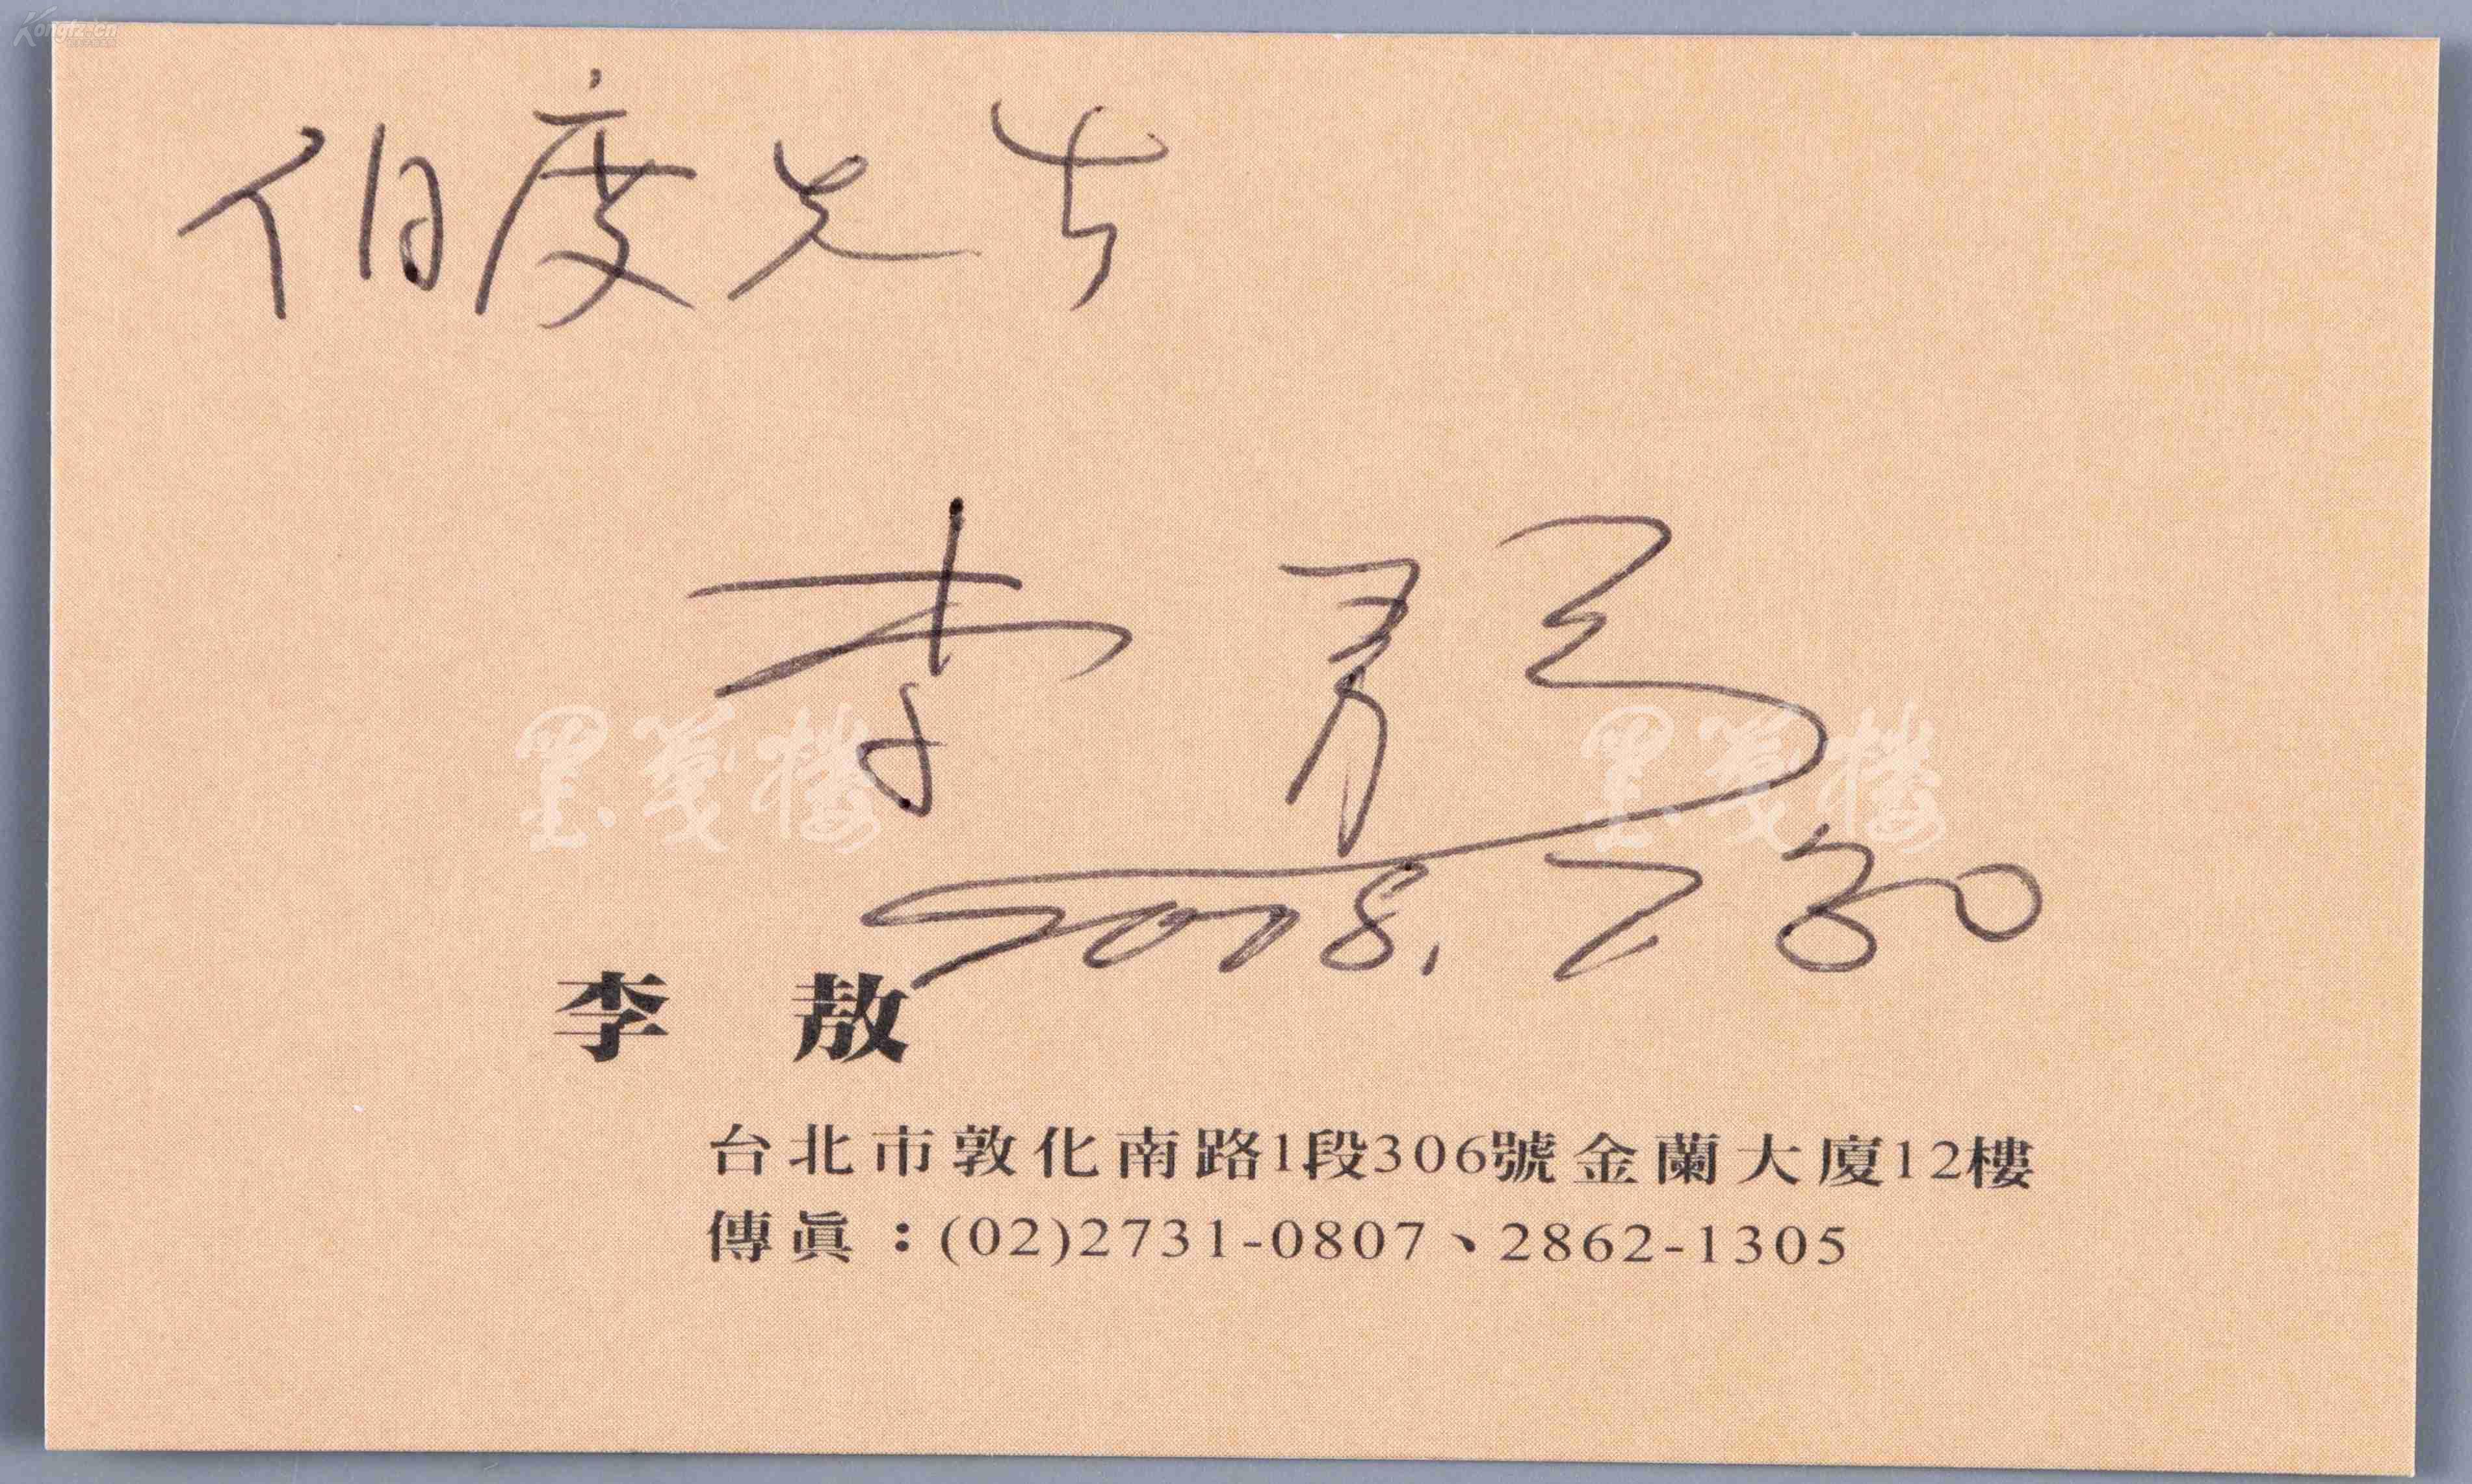 Kongfz.cn
伯度兄出
李敖
2008.7.30
墨箋樓 墨箋樓
李 敖
台北市敦化南路1段306號金蘭大廈12樓
傳眞：(02)2731-0807、2862-1305